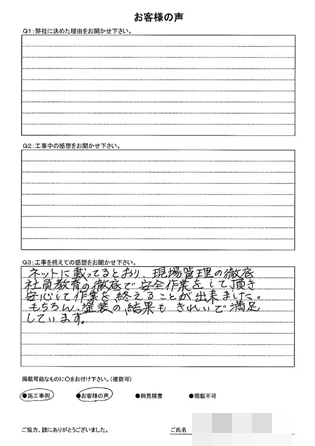 お客様の声
Q1：弊社に決めた理由をお聞かせ下さい。
Q2：工事中の感想をお聞かせ下さい。
Q3：工事を終えての感想をお聞かせ下さい。
ネットに載ってるとおり、現場管理の徹底
社員教育の徹底で安全作業をして頂き
安心して作業を終えることが出来ました。
もちろん、塗装の結果もきれいで満足
しています。
掲載可能なものに〇をお付け下さい。（複数可）
●施工事例 ●お客様の声 ●御見積書 ●掲載不可
ご協力、誠にありがとうございました。 ご氏名